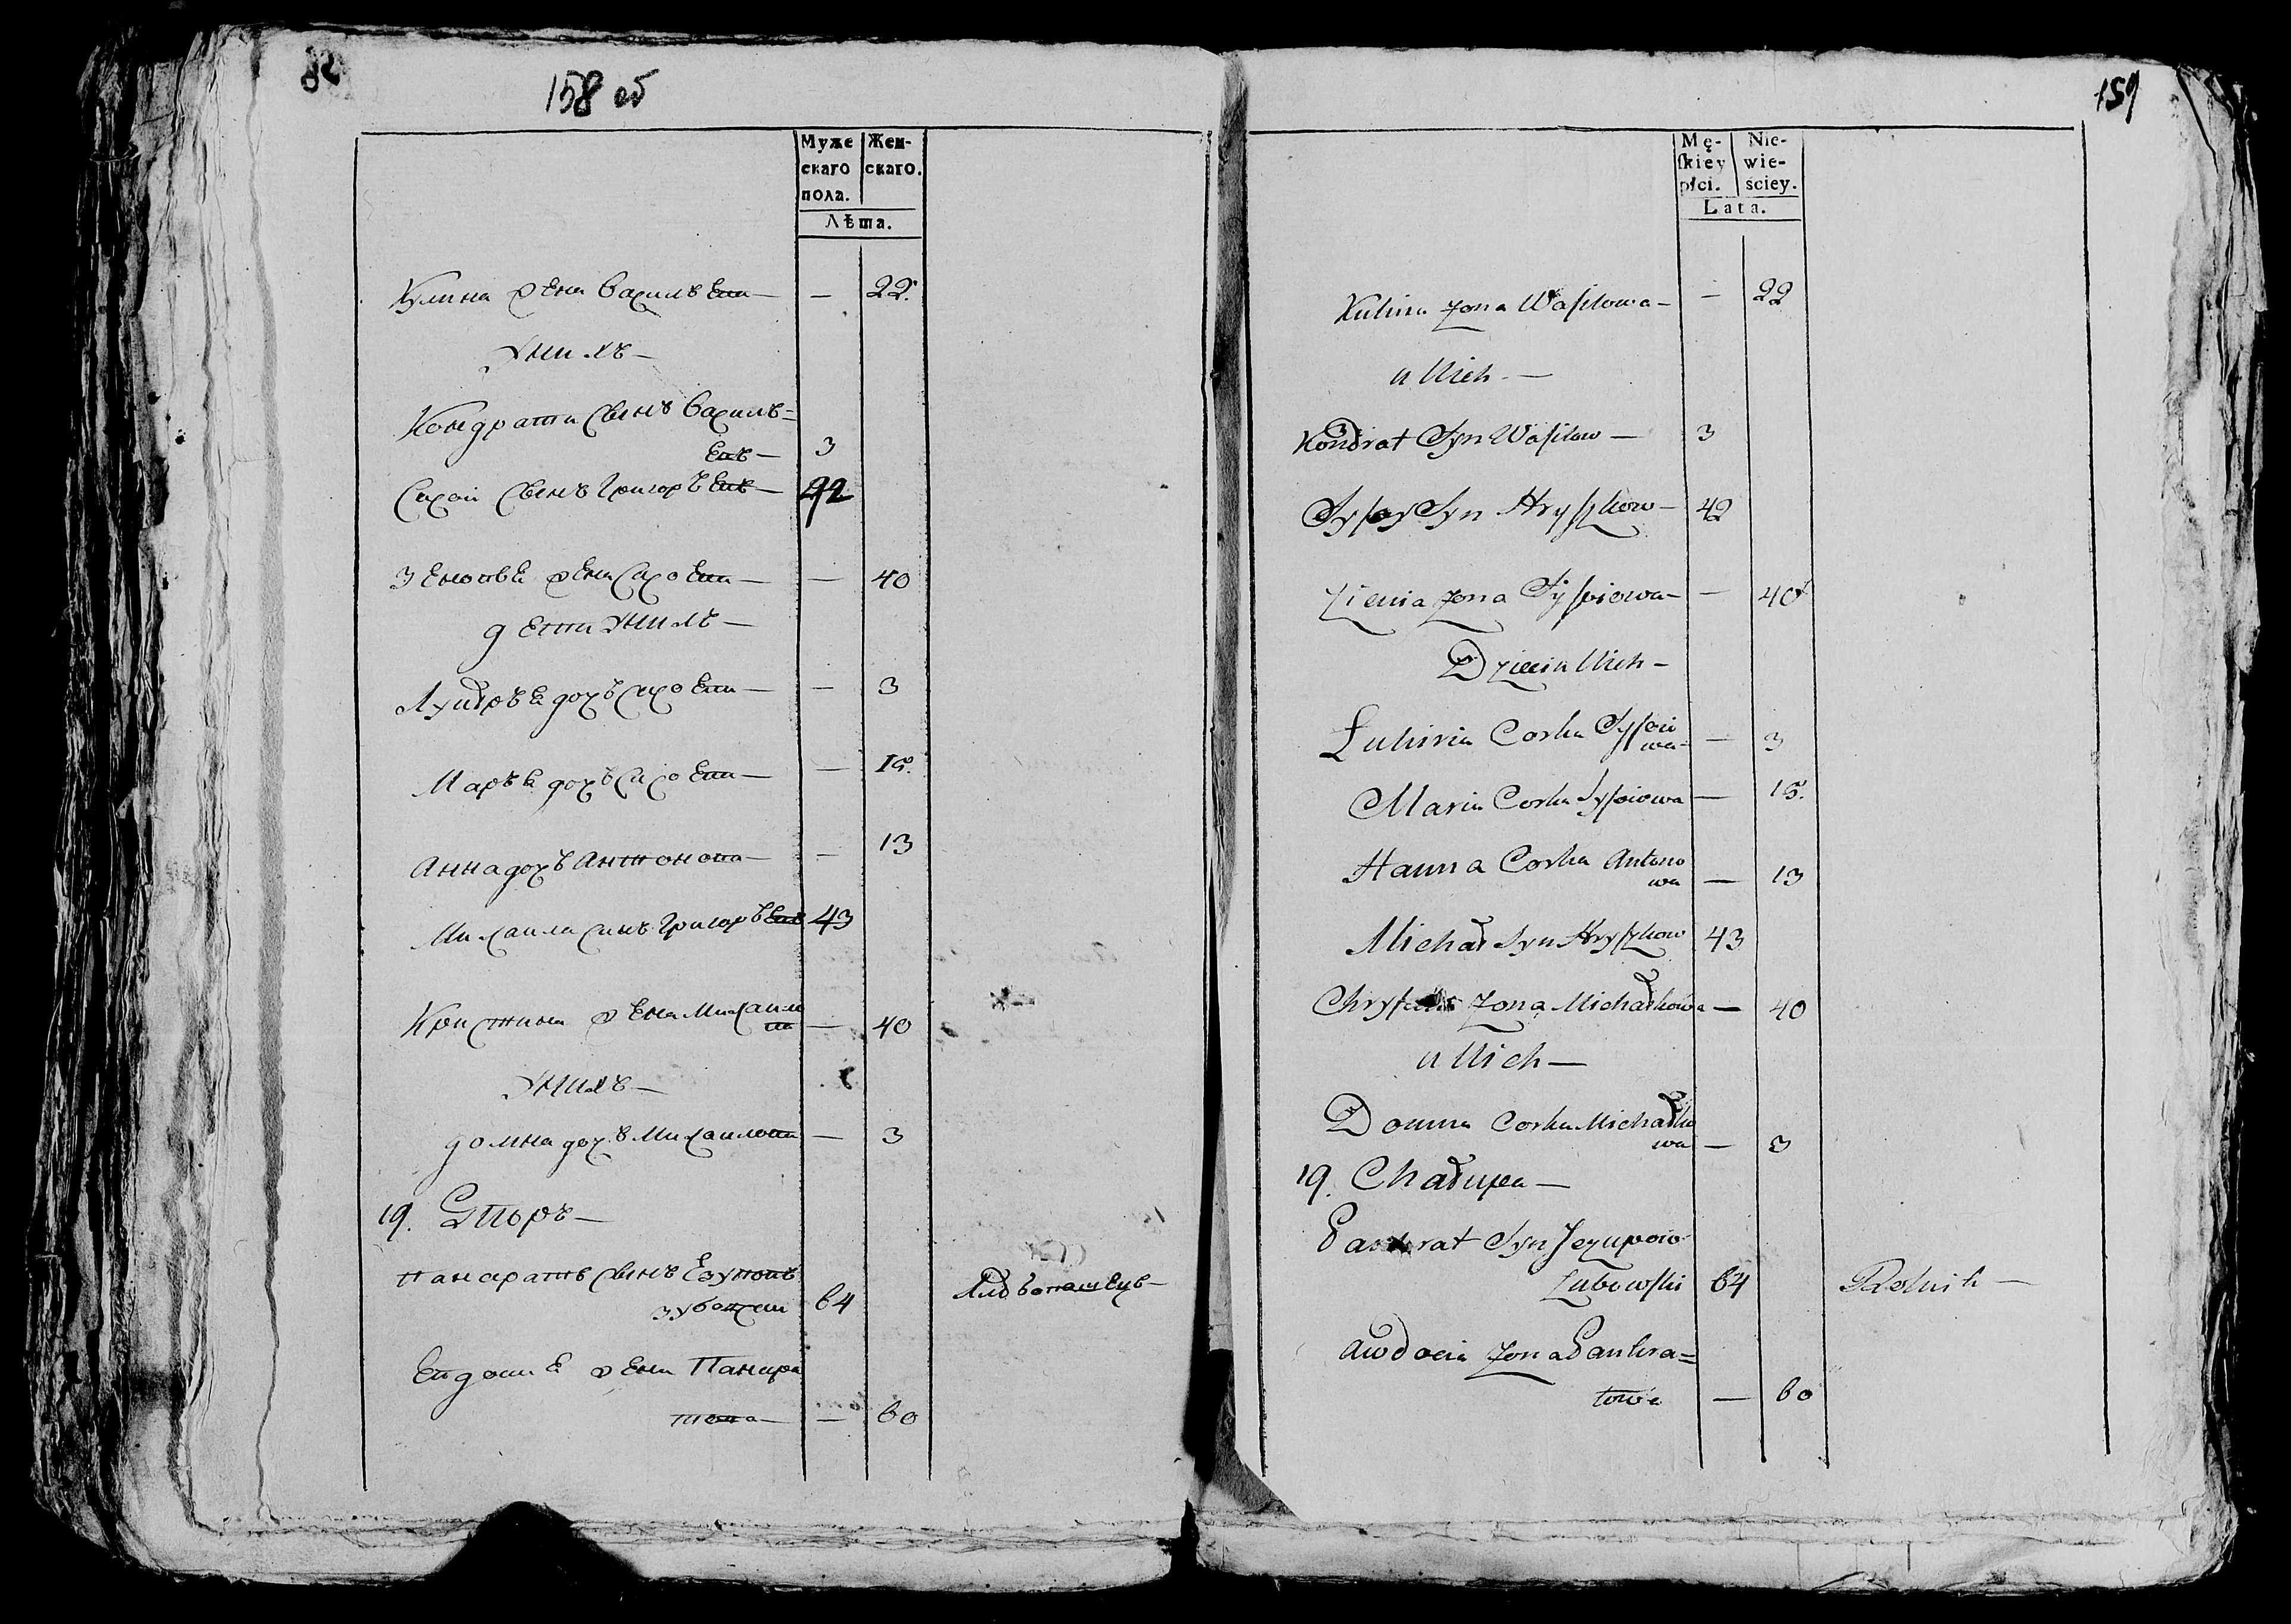 82
158 об
Муже
скаго
пола.
Жен-
скаго.
Лѣта.
Кулина жена Васильева — — 22.
У нихъ —
Кондрати сынъ Василь=
евъ — 3
Сысой сынъ Григорьевъ — 42
жена Сысоева — — 40
дети У нихъ —
дочь Сысоева — — 3
Марья дочь Сысоева — — 15.
Анна дочь Антонова — — 13
Михаила сынъ Григорьевъ 43
Кристина жена Михаило
ва — 40
У нихъ —
Домна дочь Михаилова — 3
19. Дворъ —
Панкратъ сынъ Езуповъ
64
Евдокия жена Панкра
това — — 60
159
Mę-
skiey
płci.
Nie-
wie-
ściey.
Lata.
Kulina Zona Wasilowa — — 22
u Nich —
Kondrat Syn Wasilow — 3
Sysoy Syn Hryszkow — 42
Zienia Zona Sysoiowa — — 40
Dzieci u Nich —
Lukiria Corka Sysoio
wa — — 3
Maria Corka Sysoiowa — 15.
Hanna Corka Antono
wa — 13
Michał Syn Hryszkow 43
Zona Michałkowa — 40
u Nich —
Domna Corka Michałko
wa — 3
19. Chałupa —
Pankrat Syn Jezupow
Zubowski 64 Rolnik —
Awdocia Zona Pankra=
towa — 60